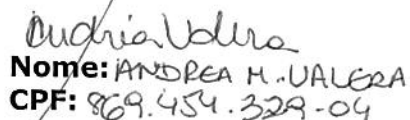 Andréa Valera
Nome: ANDREA M. VALERA
CPF: 869.454.329-04